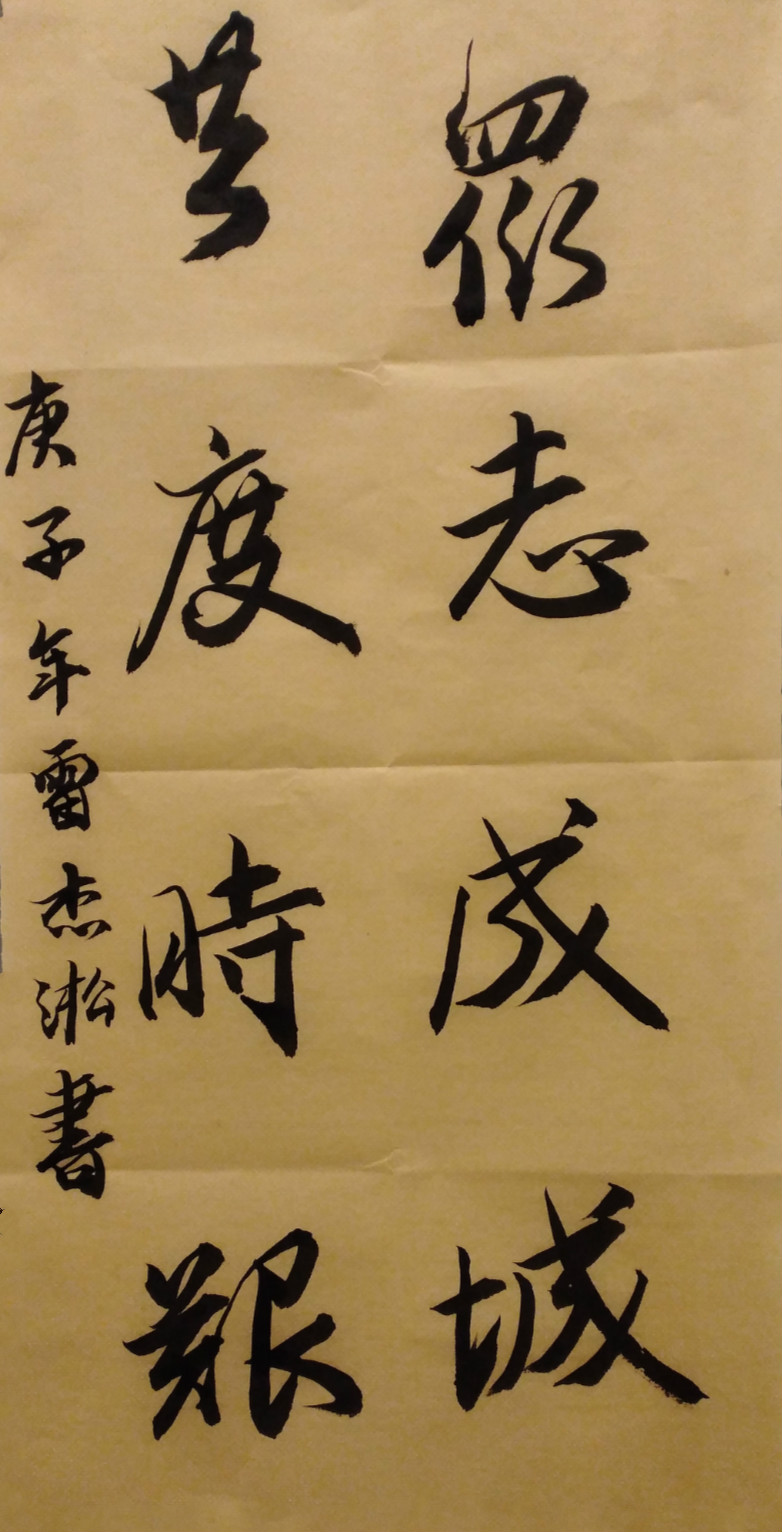 眾志成城
共度時艱
庚子年雷杰淞書